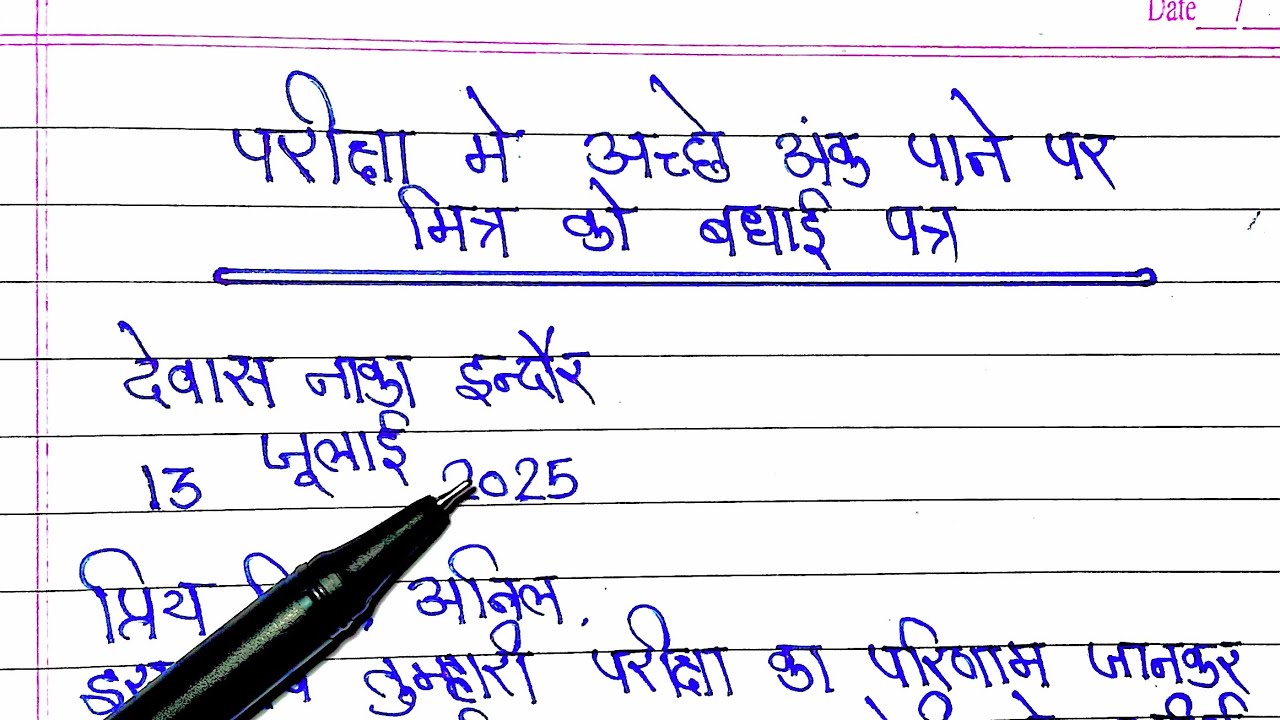 Date /
परीक्षा मे अच्छे अंक पाने पर
मित्र को बधाई पत्र
देवास नाका इन्दौर
13 जूलाई 2025
प्रिय अनिल,
तुम्हारी परीक्षा का परिणाम जानकर